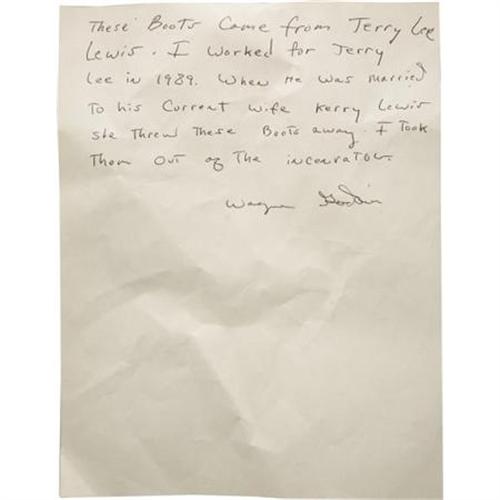 These Boots Came from Jerry Lee
Lewis. I worked for Jerry
Lee in 1989. When He was married
To his Current wife Kerry Lewis
she Threw These Boots away. I Took
Them out of The incenrator.
Wayne